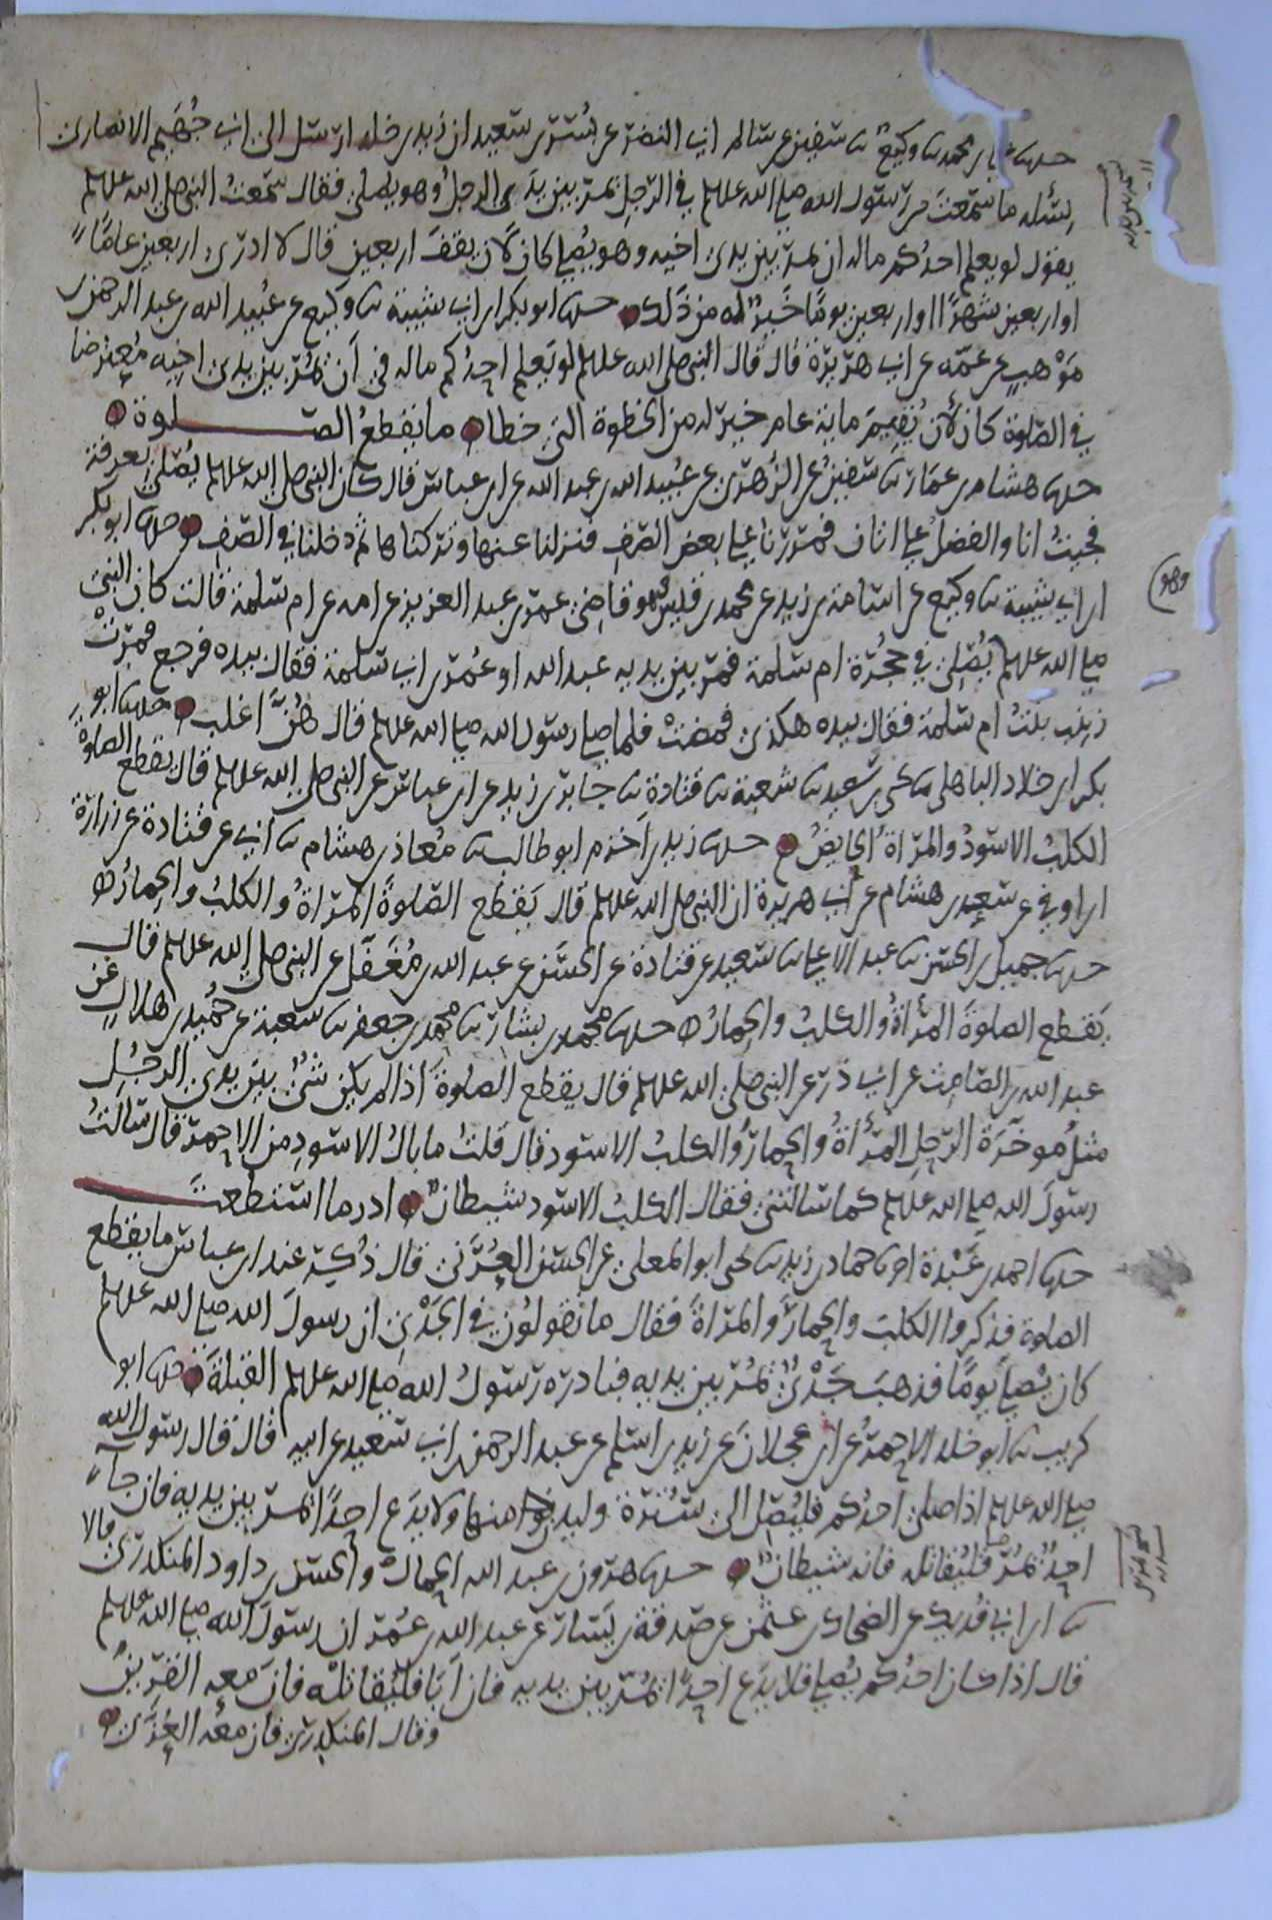 حدثنا علي بن محمد ثنا وكيع ثنا سفين عن سالم ابي النضر عن بسر بن سعيد ان زيد بن خلد ارسل الى ابي جهيم الانصاري
يسئله ما سمعت من رسول الله صلى الله عليه وسلم في الرجل يمر بين يدي الرجل وهو يصلي فقال سمعت النبي صلى الله عليه وسلم
يقول لو يعلم احدكم ماله ان يمر بين يدي اخيه وهو يصلي كان لان يقف اربعين قال لا ادري اربعين عاما
او اربعين شهرا او اربعين يوما خير له من ذلك حدثنا ابو بكر بن ابي شيبة ثنا وكيع عن عبيد الله بن عبد الرحمن بن
موهب عن عمه عن ابي هريرة قال قال النبي صلى الله عليه وسلم لو يعلم احدكم ماله في ان يمر بين يدي اخيه معترضا
في الصلوة كان لأن يقيم ماية عام خير له من الخطوة التي خطا ما يقطع الصلوة
حدثنا هشام بن عمار ثنا سفين عن الزهري عن عبيد الله بن عبد الله عن ابن عباس قال كان النبي صلى الله عليه وسلم يصلي بعرفة
فجيت انا والفضل على اتان فمررنا على بعض الصف فنزلنا عنها وتركناها ثم دخلنا في الصف حدثنا ابو بكر
ابن ابي شيبة ثنا وكيع عن اسامة بن زيد عن محمد بن قيس هو قاضي عمر بن عبد العزيز عن امه عن ام سلمة قالت كان النبي
وهو
صلى الله عليه وسلم يصلي في حجرة ام سلمة فمر بين يديه عبد الله او عمر بن ابي سلمة فقال بيده فرجع فمرت
زينب بنت ام سلمة فقال بيده هكذى فمضت فلما صلى رسول الله صلى الله عليه وسلم قال هن اغلب حدثنا ابو
بكر بن خلاد الباهلي ثنا يحيى بن سعيد ثنا شعبة ثنا قتادة ثنا جابر بن زيد عن ابن عباس عن النبي صلى الله عليه وسلم قال يقطع الصلوة
الكلب الاسود والمرأة الحايض حدثنا زيد بن اخزم ابو طالب ثنا معاذ بن هشام ثنا ابي عن قتادة عن زرارة
ابن اوفى عن سعد بن هشام عن ابي هريرة ان النبي صلى الله عليه وسلم قال يقطع الصلوة المرأة والكلب والحمار
حدثنا جميل بن الحسن ثنا عبد الاعلى ثنا سعيد عن قتادة عن الحسن عن عبد الله بن مغفل عن النبي صلى الله عليه وسلم قال
يقطع الصلوة المرأة والكلب والحمار حدثنا محمد بن بشار ثنا محمد بن جعفر ثنا شعبة عن حميد بن هلال عن
عبد الله بن الصامت عن ابي ذر عن النبي صلى الله عليه وسلم قال يقطع الصلوة اذا لم يكن شئ بين يدي الرجل
مثل موخرة الرحل المرأة والحمار والكلب الاسود قال قلت ما بال الاسود من الاحمر قال سالت
رسول الله صلى الله عليه وسلم كما سالتني فقال الكلب الاسود شيطان ادرا ما استطعت
حدثنا احمد بن عبدة اخبرنا حماد بن زيد ثنا يحيى ابو المعلى عن الحسن العرني قال ذكر عند ابن عباس ما يقطع
الصلوة فذكروا الكلب والحمار والمرأة فقال ما تقولون في الجدي ان رسول الله صلى الله عليه وسلم
كان يصلي يوما فذهب جدي يمر بين يديه فبادره رسول الله صلى الله عليه وسلم القبلة حدثنا ابو
كريب ثنا ابو خلد الاحمر عن ابن عجلان عن زيد بن اسلم عن عبد الرحمن بن ابي سعيد عن ابيه قال قال رسول الله
صلى الله عليه وسلم اذا صلى احدكم فليصل الى سترة وليدن منها ولا يدع احدا يمر بين يديه فان جآ
احد يمر فليقاتله فانه شيطان حدثنا هرون بن عبد الله الحمال والحسن بن داود المنكدري قالا
ثنا ابن ابي فديك عن الضحاك بن عثمن عن صدقة بن يسار عن عبد الله بن عمر ان رسول الله صلى الله عليه وسلم
قال اذا كان احدكم يصلي فلا يدع احدا يمر بين يديه فان ابا فليقاتله فان معه القرين
وقال المنكدري فان معه العزى